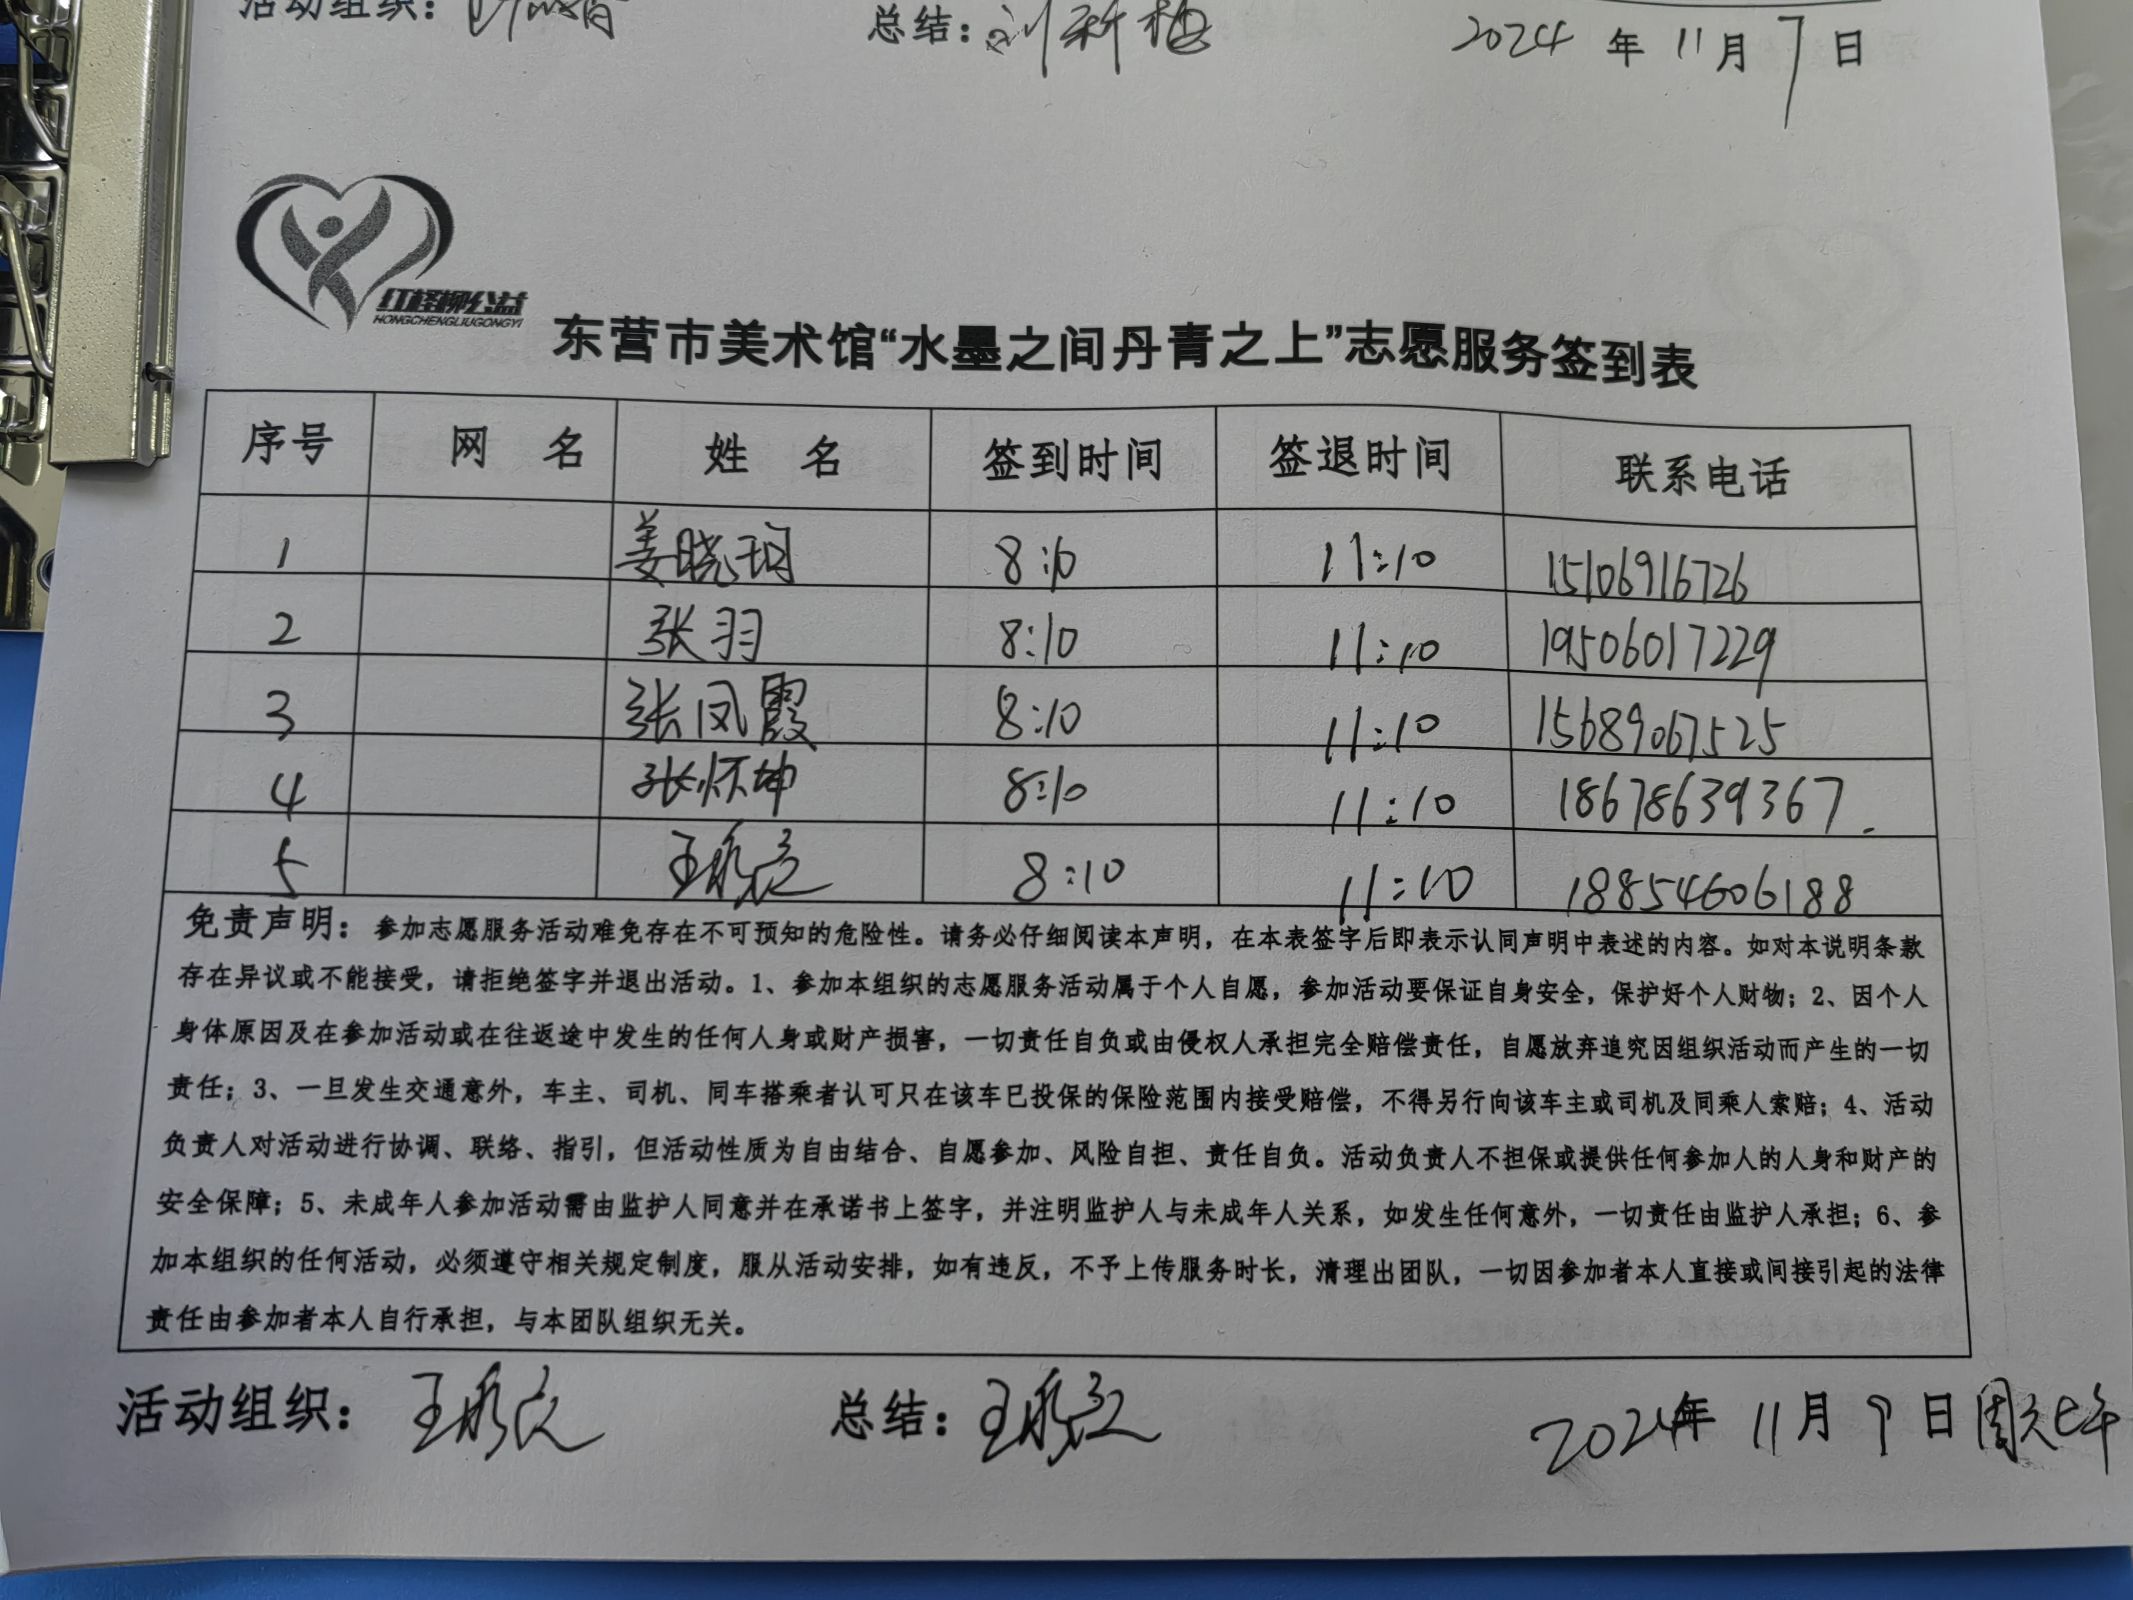 活动组织：
总结：刘新梅
2024 年 11 月 7 日
红柽柳公益
HONGCHENGLIUGONGYI
东营市美术馆“水墨之间丹青之上”志愿服务签到表
序号 网 名 姓 名 签到时间 签退时间 联系电话
1 姜晓玥 8:10 11:10 15106916726
2 张羽 8:10 11:10 19506017229
3 张凤霞 8:10 11:10 15689067525
4 张怀坤 8:10 11:10 18678639367.
5 王 8:10 11:10 18854606188
免责声明：参加志愿服务活动难免存在不可预知的危险性。请务必仔细阅读本声明，在本表签字后即表示认同声明中表述的内容。如对本说明条款
存在异议或不能接受，请拒绝签字并退出活动。1、参加本组织的志愿服务活动属于个人自愿，参加活动要保证自身安全，保护好个人财物；2、因个人
身体原因及在参加活动或在往返途中发生的任何人身或财产损害，一切责任自负或由侵权人承担完全赔偿责任，自愿放弃追究因组织活动而产生的一切
责任；3、一旦发生交通意外，车主、司机、同车搭乘者认可只在该车已投保的保险范围内接受赔偿，不得另行向该车主或司机及同乘人索赔；4、活动
负责人对活动进行协调、联络、指引，但活动性质为自由结合、自愿参加、风险自担、责任自负。活动负责人不担保或提供任何参加人的人身和财产的
安全保障；5、未成年人参加活动需由监护人同意并在承诺书上签字，并注明监护人与未成年人关系，如发生任何意外，一切责任由监护人承担；6、参
加本组织的任何活动，必须遵守相关规定制度，服从活动安排，如有违反，不予上传服务时长，清理出团队，一切因参加者本人直接或间接引起的法律
责任由参加者本人自行承担，与本团队组织无关。
活动组织： 王 总结： 王 2024年 11 月 9 日 周六上午